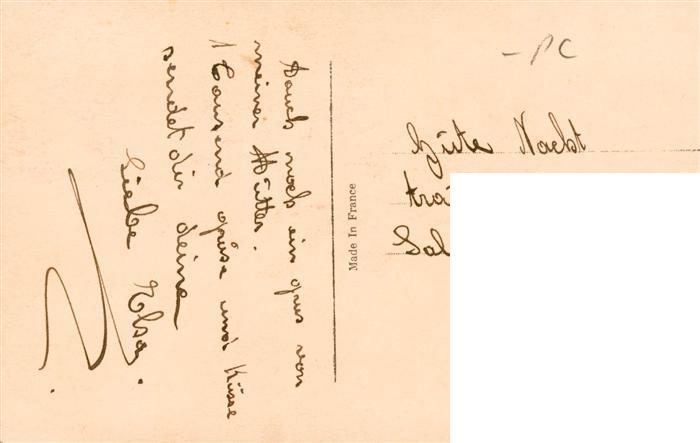 Auch noch ein grus von
meiner Mutter.
1 Tausend grüse und Küsse
sendet dir deine
liebe Elsa.
Made In France
PC
Gute Nacht